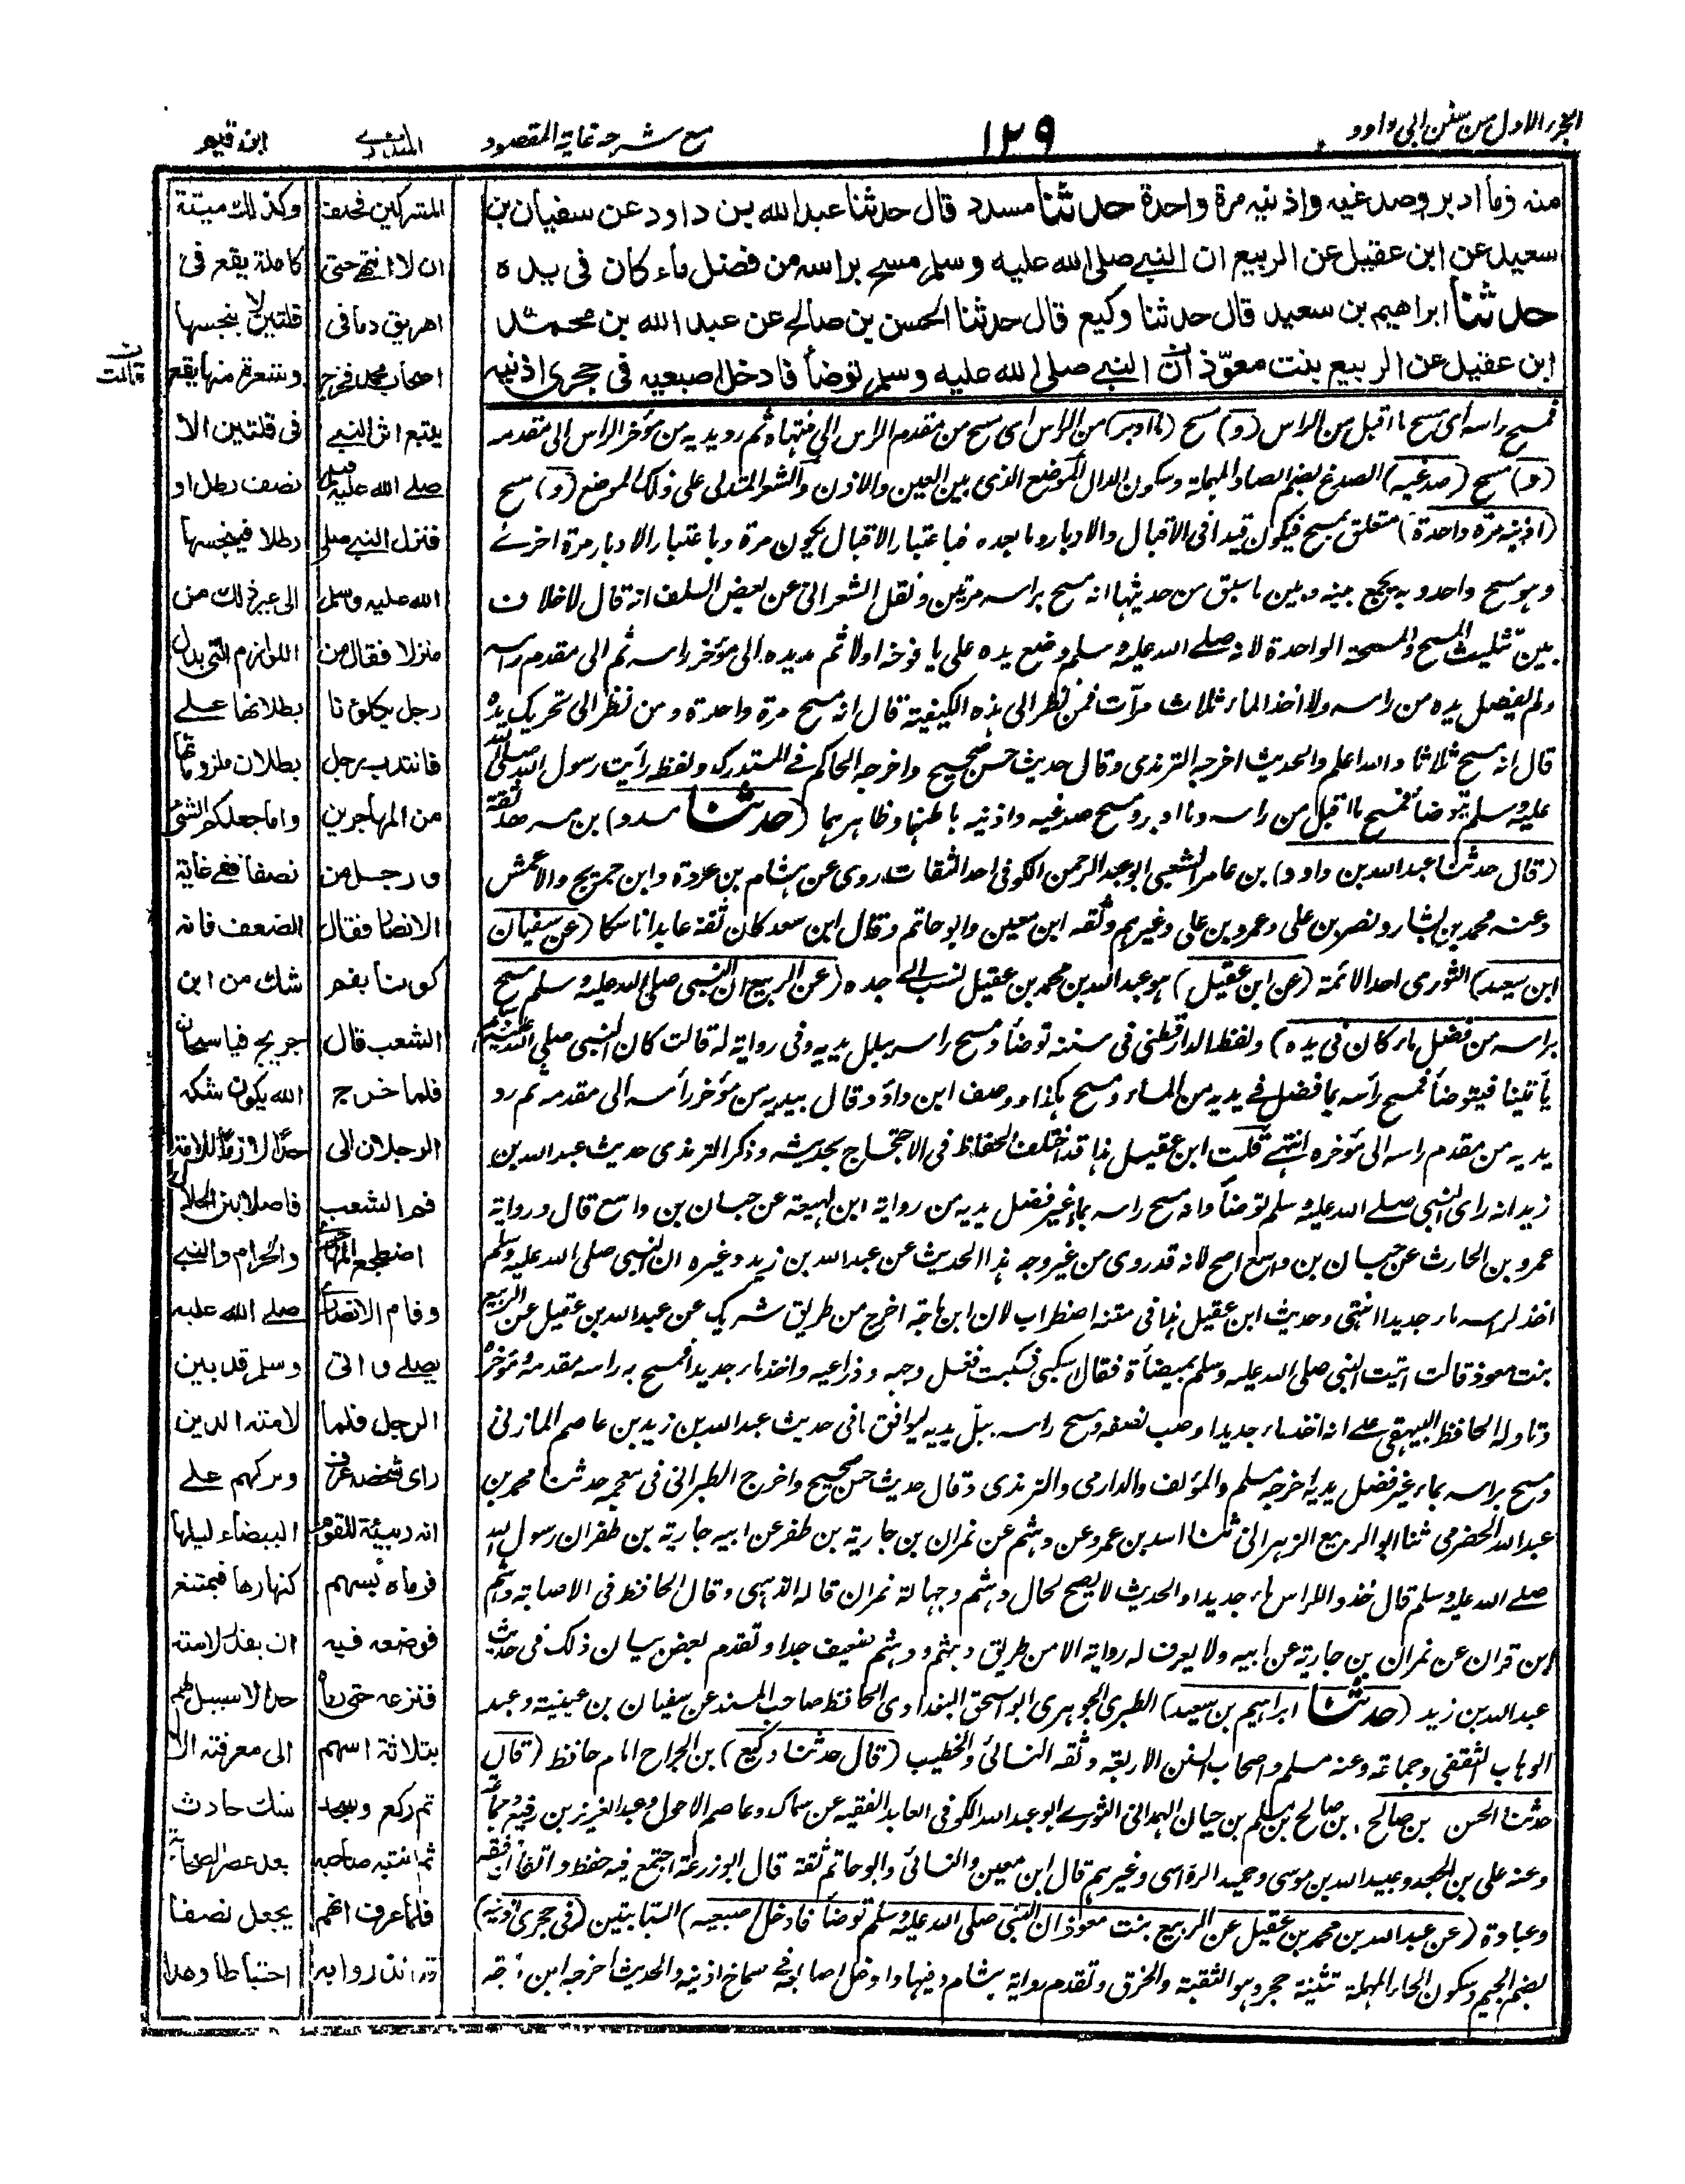 الجزء الاول من سنن ابى داود
١٢٩
مع شرحه غاية المقصود
المنذرى
ابن قيم
منه وما ادبر وصدغيه واذنيه مرة واحدة حدثنا مسدد قال حدثنا عبد الله بن داود عن سفيان بن
سعيد عن ابن عقيل عن الربيع ان النبى صلى الله عليه وسلم مسح براسه من فضل ماء كان فى يده
حدثنا ابراهيم بن سعيد قال حدثنا وكيع قال حدثنا الحسن بن صالح عن عبد الله بن محمد
ابن عقيل عن الربيع بنت معوّذ ان النبى صلى الله عليه وسلم توضأ فادخل اصبعيه فى جحرى اذنيه
ن
قالت
فمسح راسه اى مسح ما اقبل من الراس (و) مسح (ما ادبر) من الراس اى مسح من مقدم الراس الى منتهاه ثم رد يديه من مؤخر الراس الى مقدمه
(و) مسح (صدغيه) الصدغ بضم الصاد المهملة وسكون الدال الموضع الذى بين العين والاذن والشعر المتدلى على ذلك الموضع (و) مسح
(اذنيه مرة واحدة) متعلق بمسح فيكون قيدا فى الاقبال والادبار وما بعده فباعتبار الاقبال يكون مرة وباعتبار الادبار مرة اخرى
وهو مسح واحد وبه يجمع بينه وبين ما سبق من حديثها انه مسح براسه مرتين ونقل الشعرانى عن بعض السلف انه قال لا خلاف
بين تثليث المسح والمسحة الواحدة لانه صلى الله عليه وسلم وضع يده على يافوخه اولا ثم مد يده الى مؤخر راسه ثم الى مقدم راسه
ولم يفصل يده من راسه ولا اخذ الماء ثلاث مرات فمن نظر الى هذه الكيفية قال انه مسح مرة واحدة ومن نظر الى تحريك يده
قال انه مسح ثلاثا والله اعلم والحديث اخرجه الترمذى وقال حديث حسن صحيح واخرجه الحاكم فى المستدرك ولفظه رأيت رسول الله صلى الله
عليه وسلم توضأ فمسح ما اقبل من راسه وما ادبر ومسح صدغيه واذنيه باطنهما وظاهرهما (حدثنا مسدد) بن مسرهد ثقة
(قال حدثنا عبد الله بن داود) بن عامر الشعبى ابو عبد الرحمن الكوفى احد الثقات روى عن هشام بن عروة وابن جريج والاعمش
وعنه محمد بن بشار ونصر بن على وعمرو بن على وغيرهم وثقه ابن معين وابو حاتم وقال ابن سعد كان ثقة عابدا ناسكا (عن سفيان
ابن سعيد) الثورى احد الائمة (عن ابن عقيل) هو عبد الله بن محمد بن عقيل نسب الى جده (عن الربيع ان النبى صلى الله عليه وسلم مسح
براسه من فضل ماء كان فى يده) ولفظ الدارقطنى فى سننه توضأ ومسح راسه ببلل يديه وفى رواية له قالت كان النبى صلى الله عليه وسلم
يأتينا فيتوضأ فمسح رأسه بما فضل فى يديه من الماء ومسح هكذا ووصف ابن داؤد وقال بيديه من مؤخر رأسه الى مقدمه ثم رد
يديه من مقدم راسه الى مؤخره انتهى قلت ابن عقيل هذا قد اختلف الحفاظ فى الاحتجاج بحديثه وذكر الترمذى حديث عبد الله بن
زيد انه راى النبى صلى الله عليه وسلم توضأ وانه مسح راسه بماء غير فضل يديه من رواية ابن لهيعة عن حبان بن واسع قال ورواية
عمرو بن الحارث عن حبان بن واسع اصح لانه قد روى من غير وجه هذا الحديث عن عبد الله بن زيد وغيره ان النبى صلى الله عليه وسلم
اخذ لراسه ماء جديدا انتهى وحديث ابن عقيل هذا فى متنه اضطراب لان ابن ماجة اخرج من طريق شريك عن عبد الله بن عقيل عن الربيع
بنت معوذ قالت اتيت النبى صلى الله عليه وسلم بميضأة فقال اسكبى فسكبت فغسل وجهه وذراعيه واخذ ماء جديدا فمسح به راسه مقدمه ومؤخره
وتاوله الحافظ البيهقى على انه اخذ ماء جديدا وصب نصفه ومسح راسه ببلل يديه ليوافق ما فى حديث عبد الله بن زيد بن عاصم المازنى
ومسح براسه بماء غير فضل يديه اخرجه مسلم والمؤلف والدارمى والترمذى وقال حديث حسن صحيح واخرج الطبرانى فى معجمه حدثنا محمد بن
عبد الله الحضرمى ثنا ابو الربيع الزهرانى ثنا اسد بن عمرو عن دهثم عن نمران بن جارية بن ظفر عن ابيه جارية بن ظفر ان رسول الله
صلى الله عليه وسلم قال خذوا للراس ماء جديدا والحديث لا يصح لحال دهثم وجهالة نمران قاله الذهبى وقال الحافظ فى الاصابة دهثم
ابن قران عن نمران بن جارية عن ابيه ولا يعرف له رواية الا من طريق دهثم ودهثم ضعيف جدا وتقدم بعض بيان ذلك فى حديث
عبد الله بن زيد (حدثنا ابراهيم بن سعيد) الطبرى الجوهرى ابو اسحق البغدادى الحافظ صاحب المسند عن سفيان بن عيينة وعبد
الوهاب الثقفى وجماعة وعنه مسلم واصحاب السنن الاربعة وثقه النسائى والخطيب (قال حدثنا وكيع) بن الجراح امام حافظ (قال
حدثنا الحسن بن صالح) بن صالح بن مسلم بن حيان الهمدانى الثورى ابو عبد الله الكوفى العابد الفقيه عن سماك وعاصم الاحول وعبد العزيز بن رفيع وجماعة
وعنه على بن الجعد وعبيد الله بن موسى وحميد الرواسى وغيرهم قال ابن معين والنسائى وابو حاتم ثقة قال ابو زرعة اجتمع فيه حفظ واتقان وفقه
وعبادة (عن عبد الله بن محمد بن عقيل عن الربيع بنت معوّذ ان النبى صلى الله عليه وسلم توضأ فادخل اصبعيه) السبابتين (فى جحرى اذنيه)
بضم الجيم وسكون الحاء المهملة تثنية جحر وهو الثقبة والخرق وتقدم رواية هشام وفيها وادخل اصابعه فى صماخ اذنيه والحديث اخرجه ابن ماجة
المشركين فحلف
ان لا انتهى حتى
اهريق دما فى
اصحاب محمد فخرج
يتبع اثر النبى
صلى الله عليه وسلم
فنزل النبى صلى
الله عليه وسلم
منزلا فقال من
رجل يكلؤنا
فانتدب رجل
من المهاجرين
ورجل من
الانصار فقال
كونا بفم
الشعب قال
فلما خرج
الرجلان الى
فم الشعب
اضطجع المهاجرى
وقام الانصارى
يصلى واتى
الرجل فلما
راى شخصه عرف
انه ربيئة للقوم
فرماه بسهم
فوضعه فيه
فنزعه حتى رماه
بثلاثة اسهم
ثم ركع وسجد
ثم انتبه صاحبه
فلما عرف انهم
قد نذروا به
وكذلك ميتة
كاملة يقع فى
قلتين لا ينجسها
وشعرة منها يقع
فى قلتين الا
نصف رطل او
رطلا فينجسها
الى غير ذلك من
اللوازم التى يدل
بطلانها على
بطلان ملزوماتها
واما جعلكم الشئ
نصفا ففى غاية
الضعف فانه
شك من ابن
جريج فيا سبحان
الله يكون شكه
حدا لازما للامة
فاصلا بين الحلال
والحرام والنبى
صلى الله عليه
وسلم قد بين
لامته الدين
وتركهم على
البيضاء ليلها
كنهارها فيمتنع
ان يقدر لامته
حدا لا سبيل لهم
الى معرفته الا
شك حادث
بعد عصر الصحابة
يجعل نصفا
احتياطا وهذا